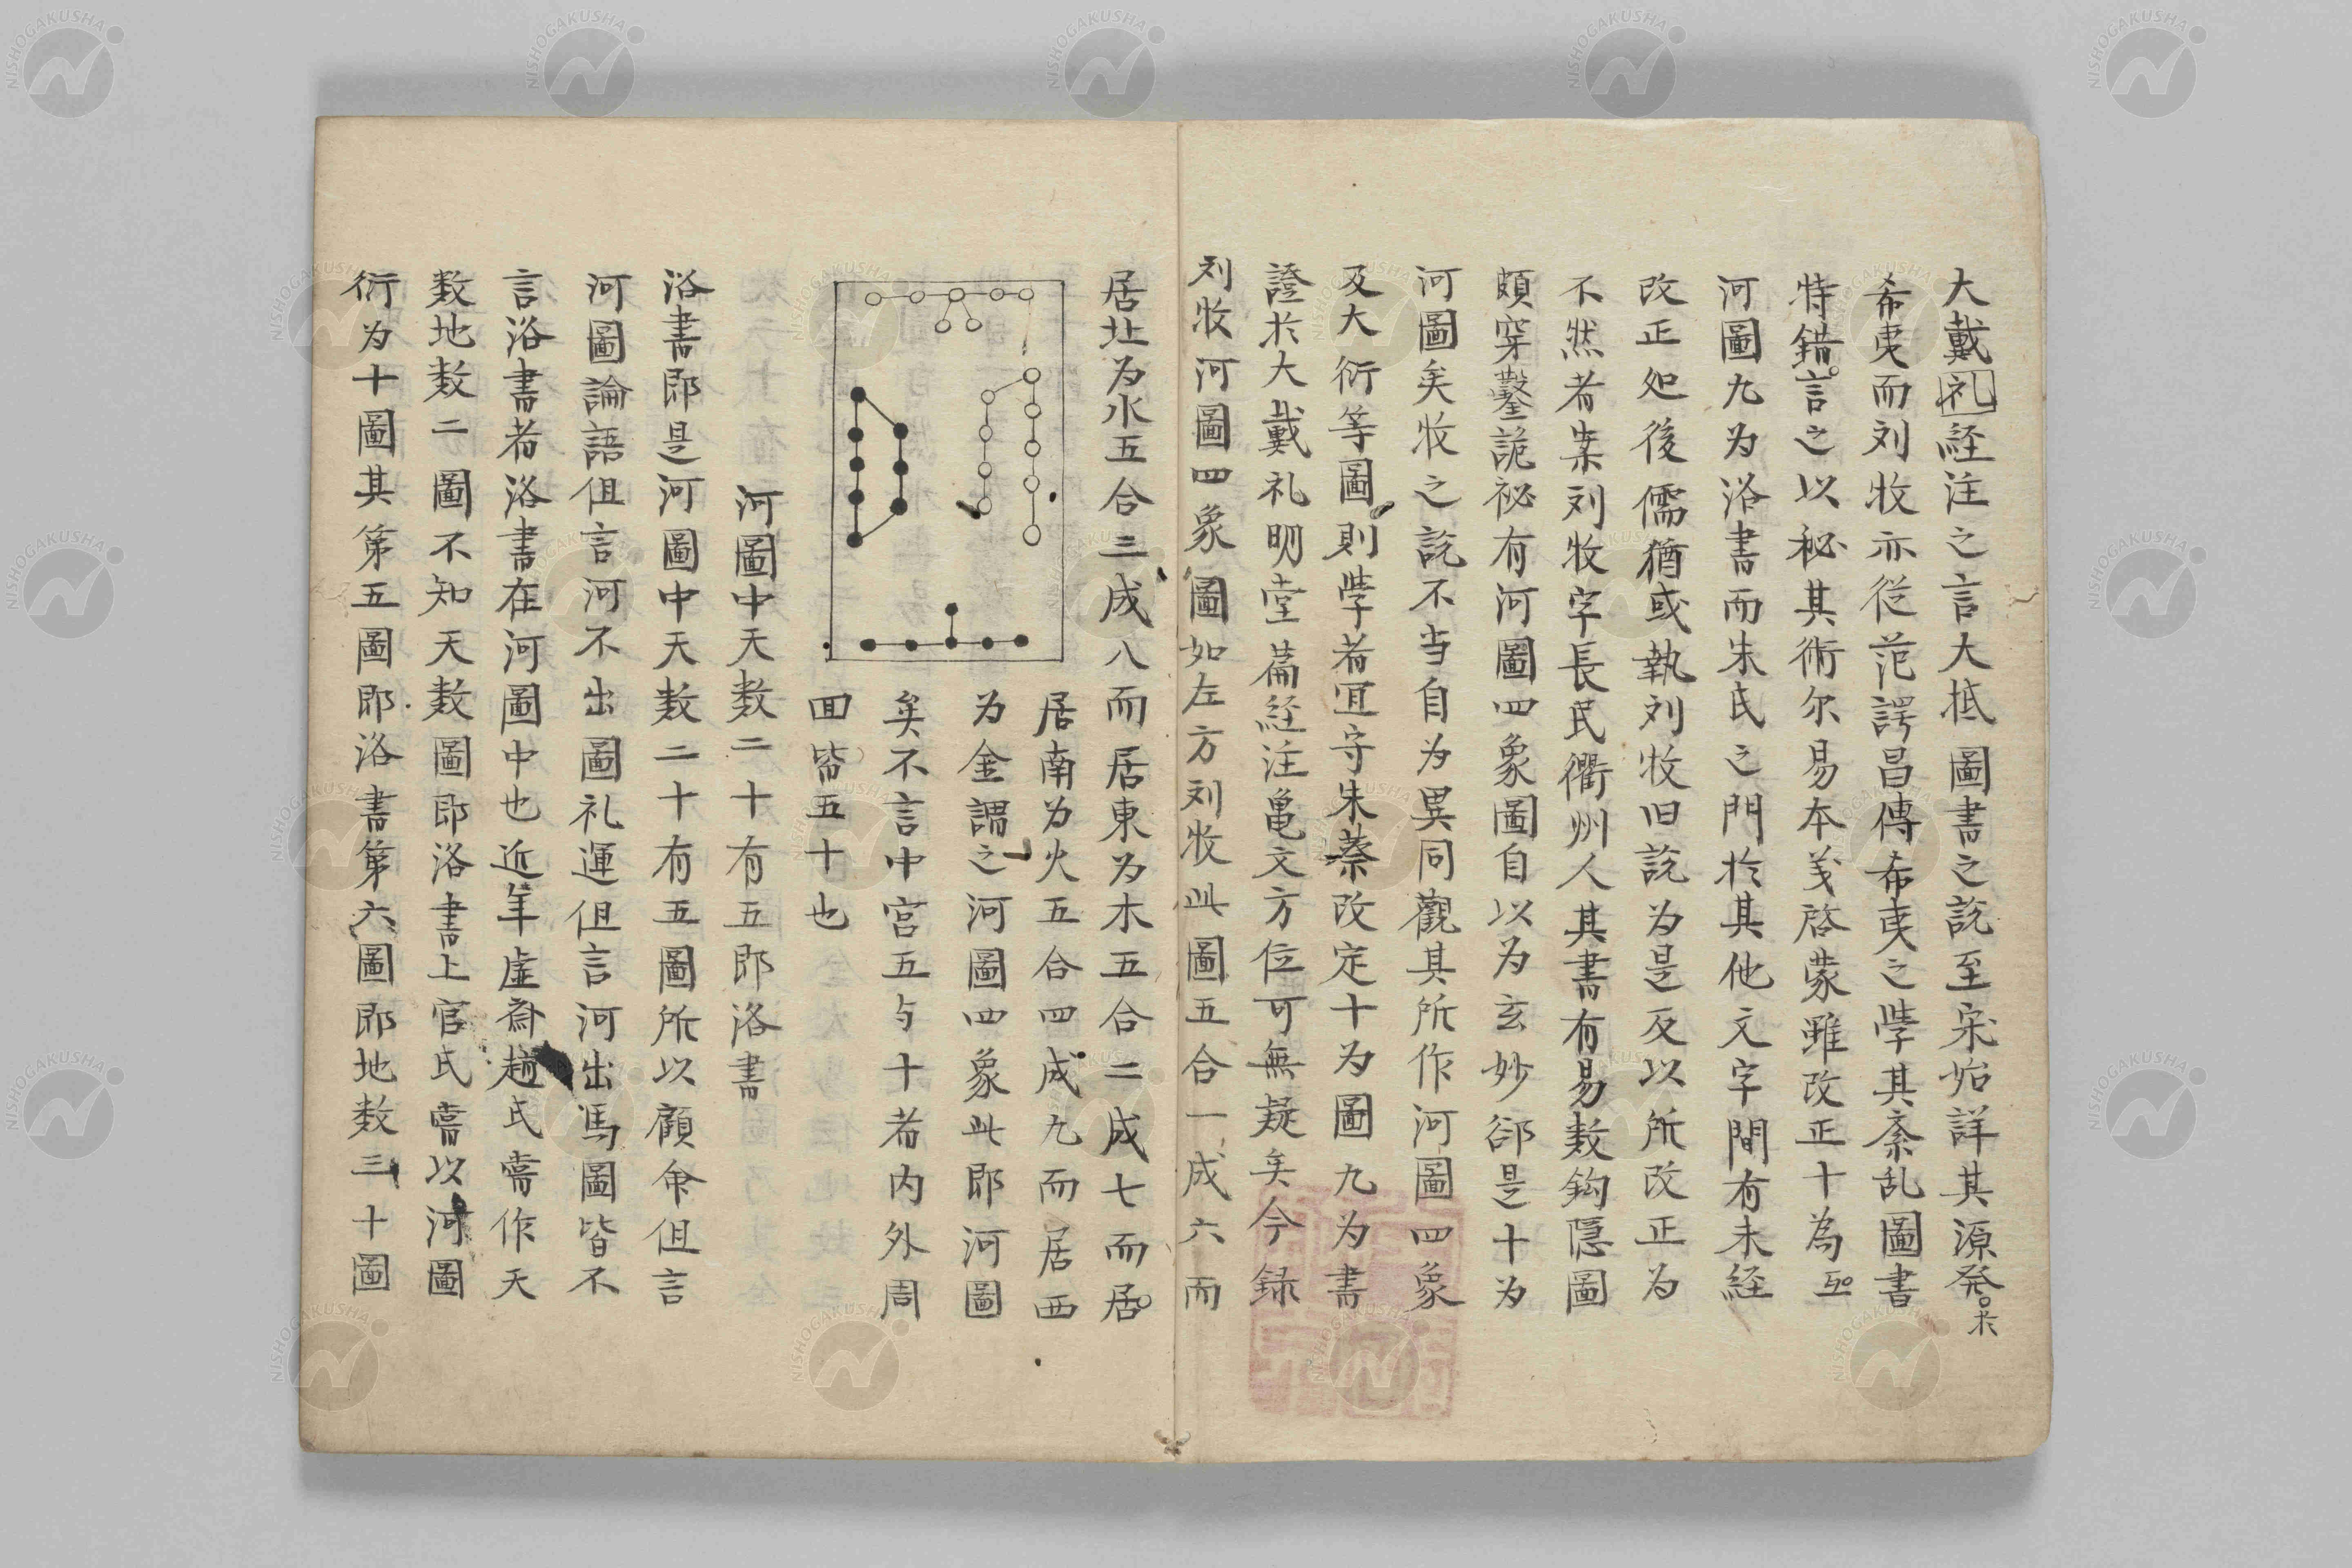 大戴礼経注之言大抵圖書之說至宋始詳其源発於
希夷而刘牧亦從范諤昌傳希夷之斈其紊乱圖書
特錯言之以秘其術尔易本义啓蒙雖改正十為
河圖九为洛書而朱氏之門於其他文字間有未経
改正处後儒猶或執刘牧旧說为是反以所改正为
不然者案刘牧字長民衢州人其書有易数鈎隱圖
頗穿鑿詭祕有河圖四象圖自以为玄妙郤是十为
河圖矣牧之說不当自为異同觀其所作河圖四象
及大衍等圖則斈者冝守朱蔡改定十为圖九为書
證於大戴礼明堂篇経注亀文方位可無疑矣今録
刘牧河圖四象圖如左方刘牧此圖五合一成六而
居北为水五合三成八而居東为木五合二成七而居
居南为火五合四成九而居西
为金謂之河圖四象此即河圖
矣不言中宮五与十者内外周
囬皆五十也
河圖中天数二十有五即洛書
洛書即是河圖中天数二十有五圖所以顧命但言
河圖論語但言河不出圖礼運但言河出馬圖皆不
言洛書者洛書在河圖中也近年虚斎趙氏甞作天
数地数二圖不知天数圖即洛書上官氏甞以河圖
衍为十圖其第五圖即洛書第六圖即地数三十圖
NISHOGAKUSHA